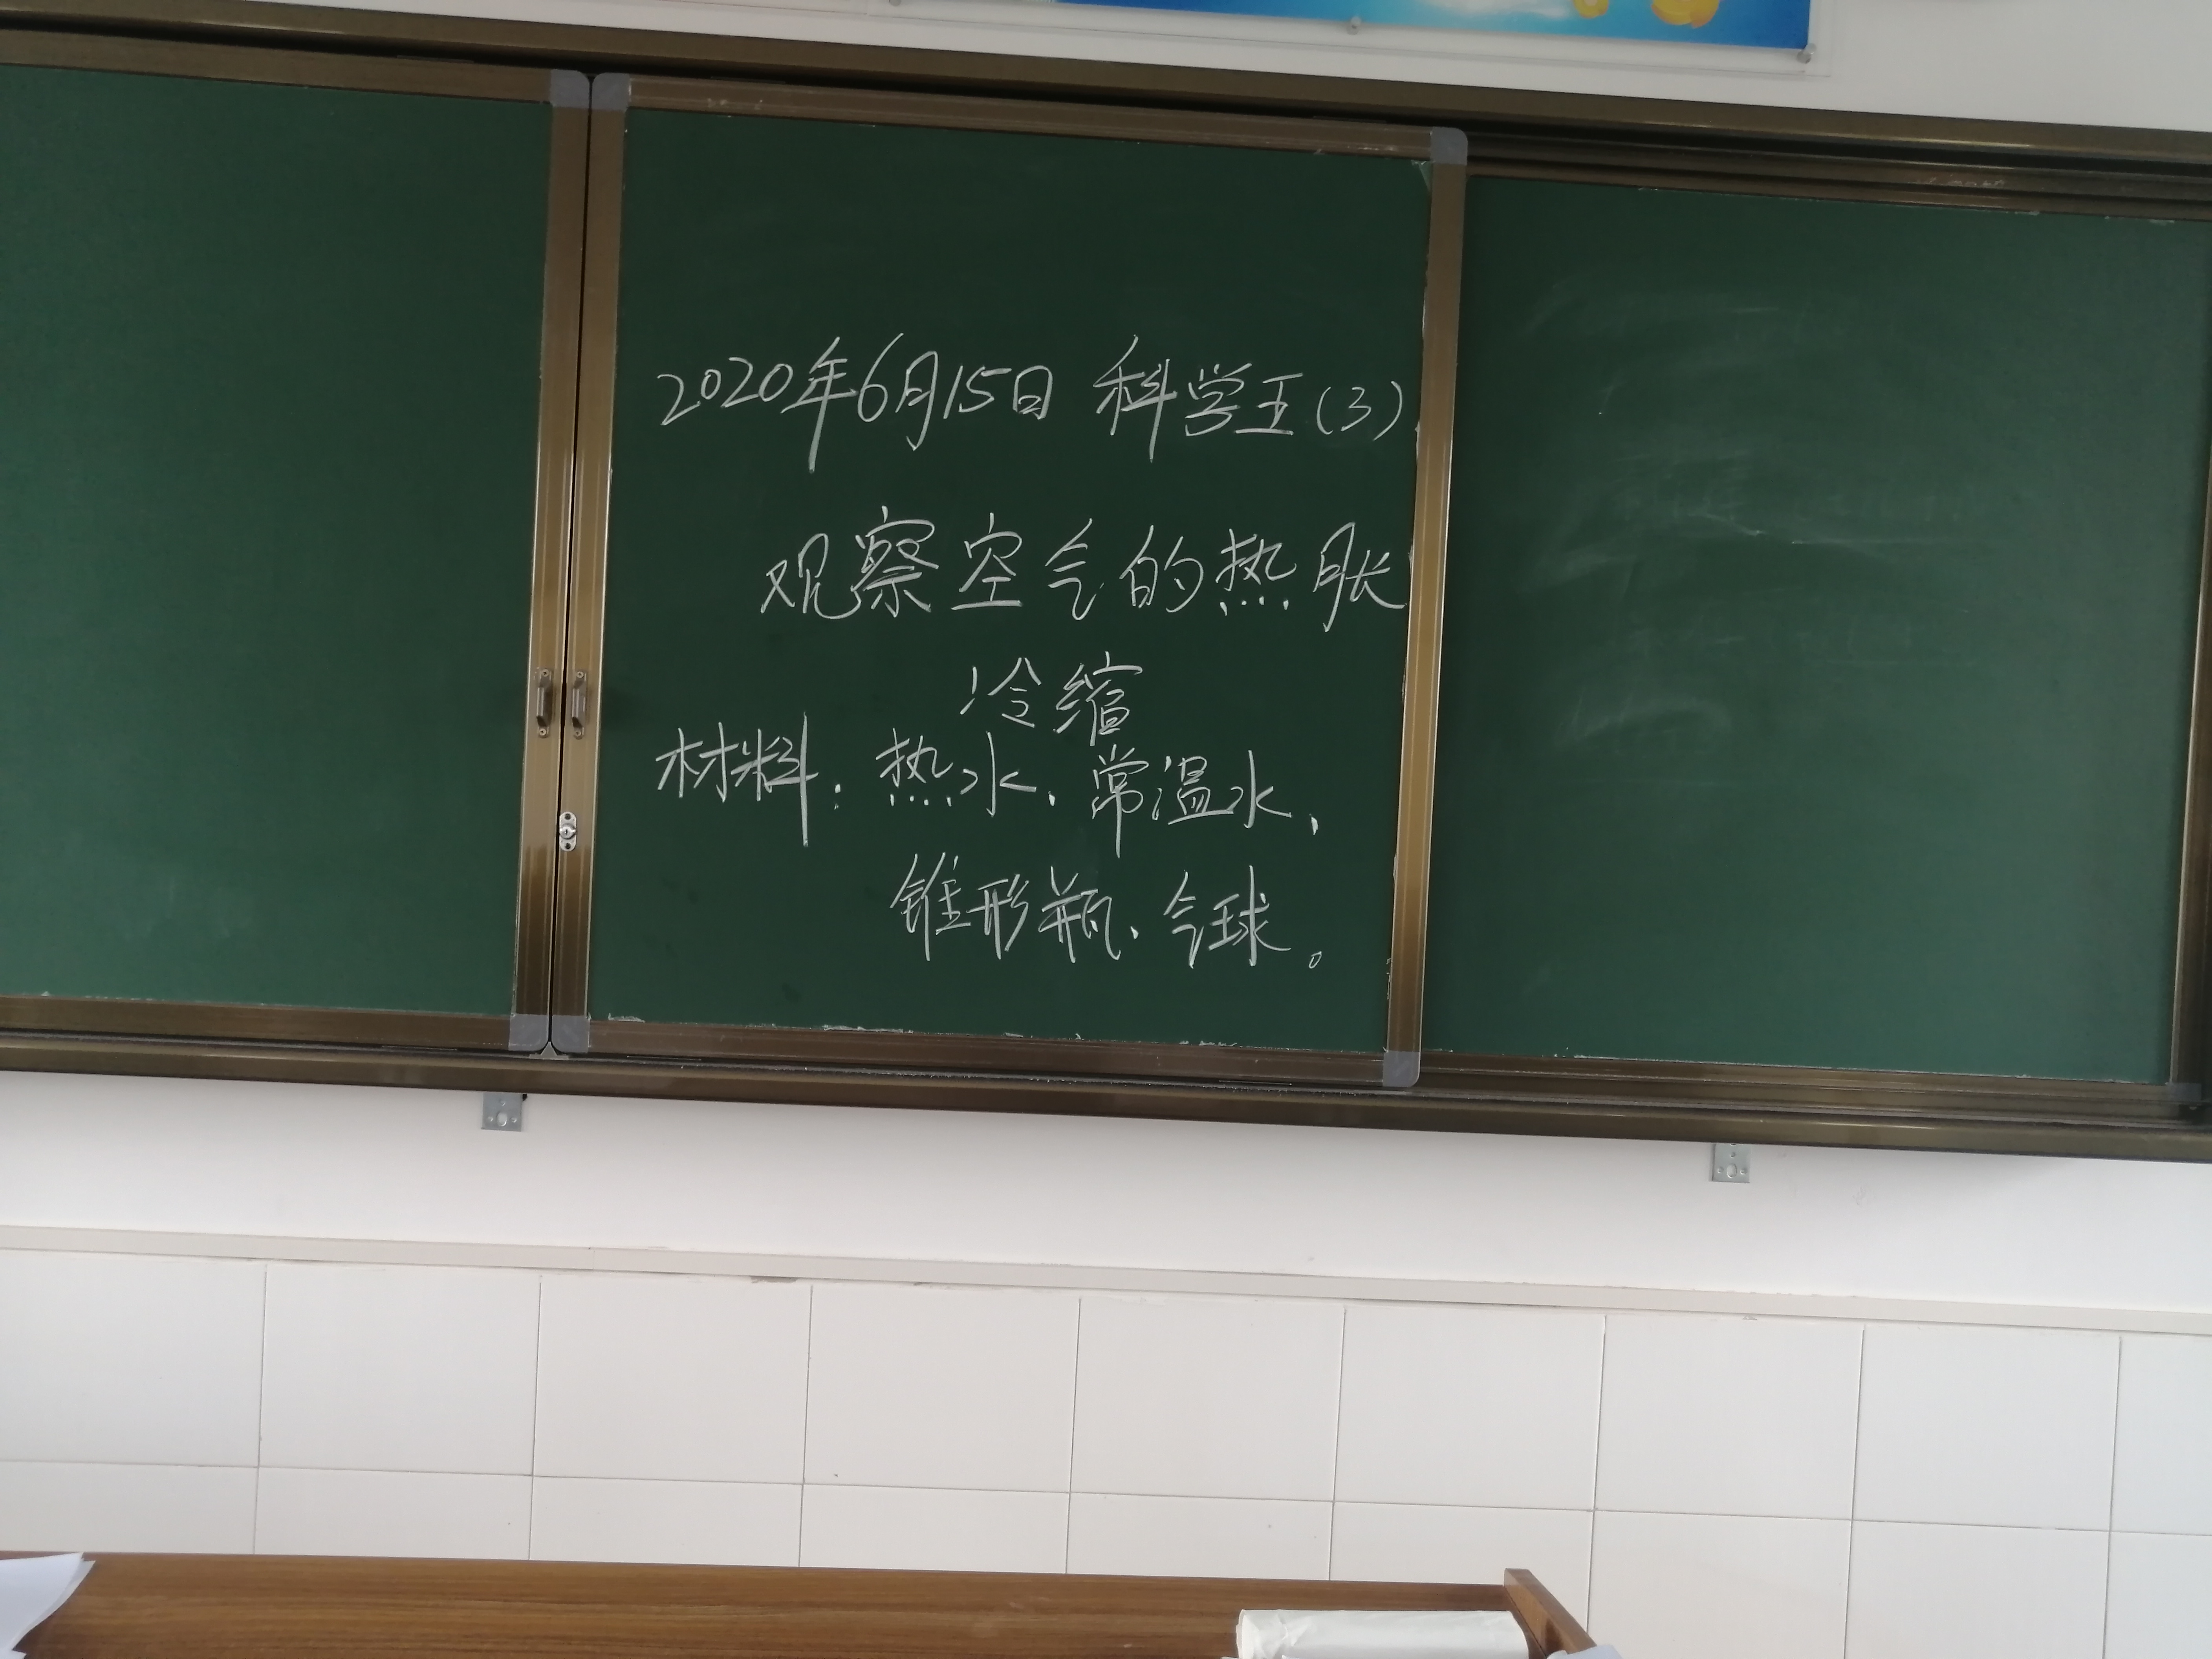 2020年6月15日 科学王(3)
观察空气的热胀
冷缩
材料：热水、常温水、
锥形瓶、气球。